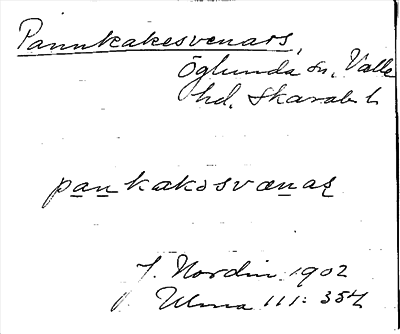 Pannkakesvenars,
Öglunda sn, Valle
hd, Skarab. l.
pankakəsvænaʂ
J. Nordin 1902
Ulma 111: 354